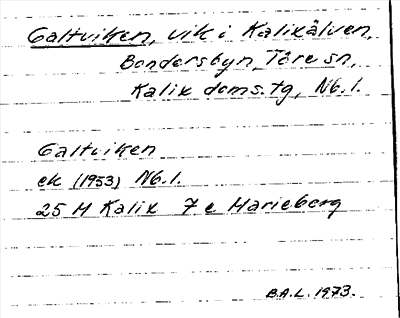 Galtviken, vik i Kalixälven,
Bondersbyn, Töre sn,
Kalix doms.tg, Nb.l.
Galtviken
ek (1953) Nb.l.
25 M Kalix 7 e Marieberg
B.A.L. 1973.